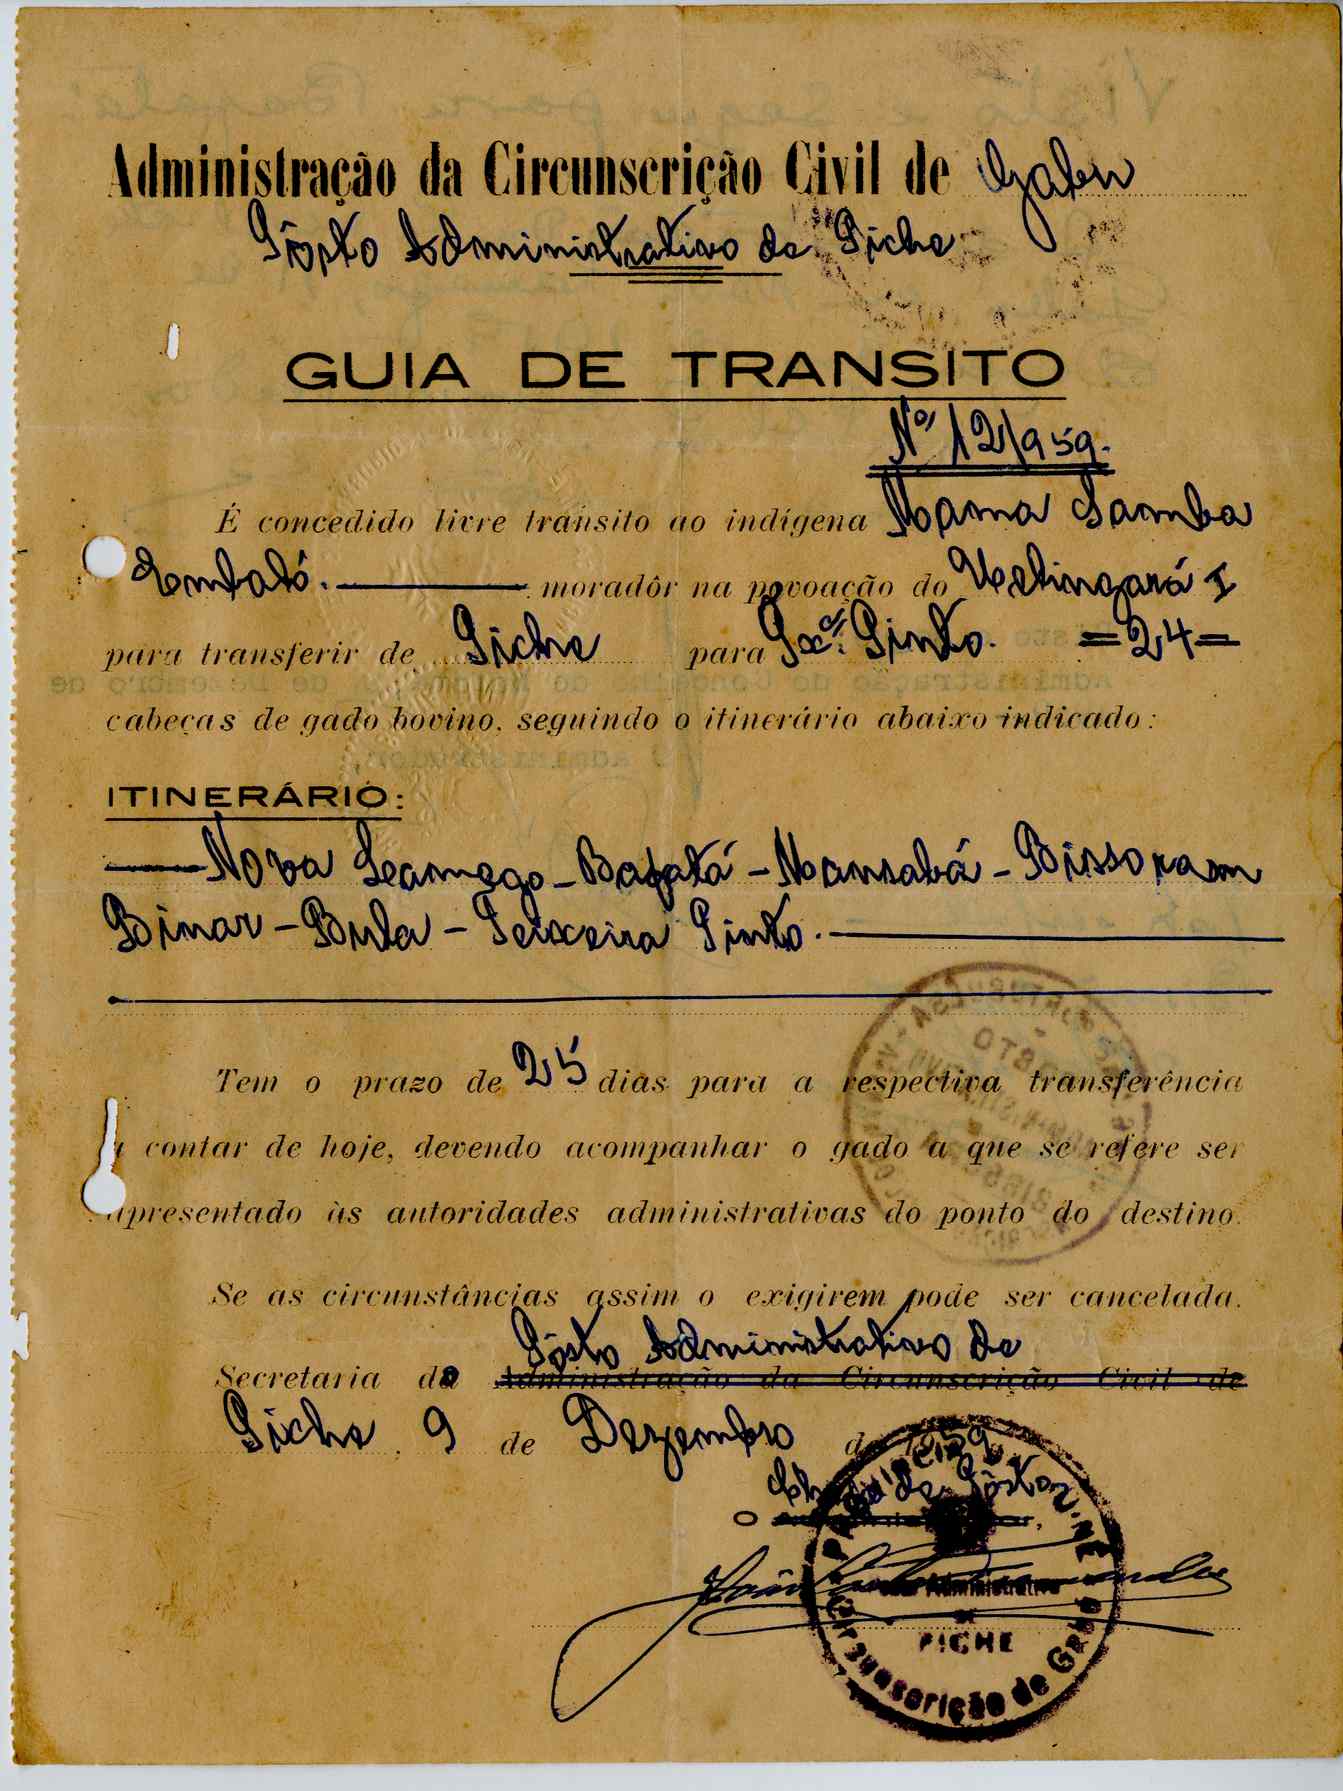 Administração da Circunscrição Civil de Gabu
Pôsto Administrativo de Piche
GUIA DE TRANSITO
Nº 12/959.
É concedido livre trânsito ao indígena Mama Samba
Embaló. moradôr na povoação do Velingará I
para transferir de Piche para Pinto. =24=
cabeças de gado bovino, seguindo o itinerário abaixo indicado:
ITINERÁRIO:
Nova Lamego - Bafatá - Mansabá - Bissoram
Binar - Bula - Teixeira Pinto.
Tem o prazo de 25 dias para a respectiva transferência
a contar de hoje, devendo acompanhar o gado a que se refere ser
apresentado às autoridades administrativas do ponto do destino.
Se as circunstâncias assim o exigirem pode ser cancelada.
Pôsto Administrativo de
Secretaria do Administração da Circunscrição Civil de
Piche, 9 de Dezembro de 1959
Chefe de Pôsto
O
Administrativo
DE
PICHE
Circunscrição de Gabú